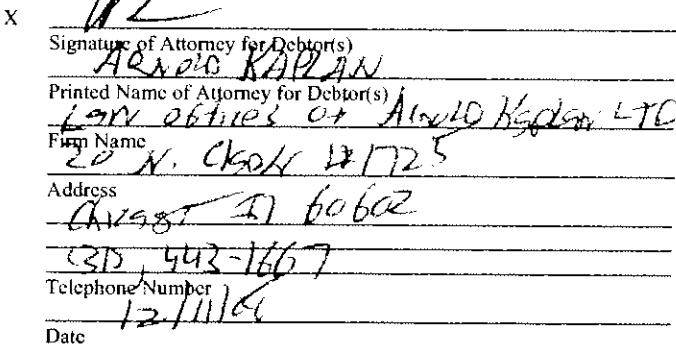 X
Signature of Attorney for Debtor(s)
ARNOLD KAPLAN
Printed Name of Attorney for Debtor(s)
Law offices of Arnold Kaplan LTD
Firm Name
20 N. Clark #1725
Address
Chicago Il 60602
443-1667
Telephone Number
12/11/
Date